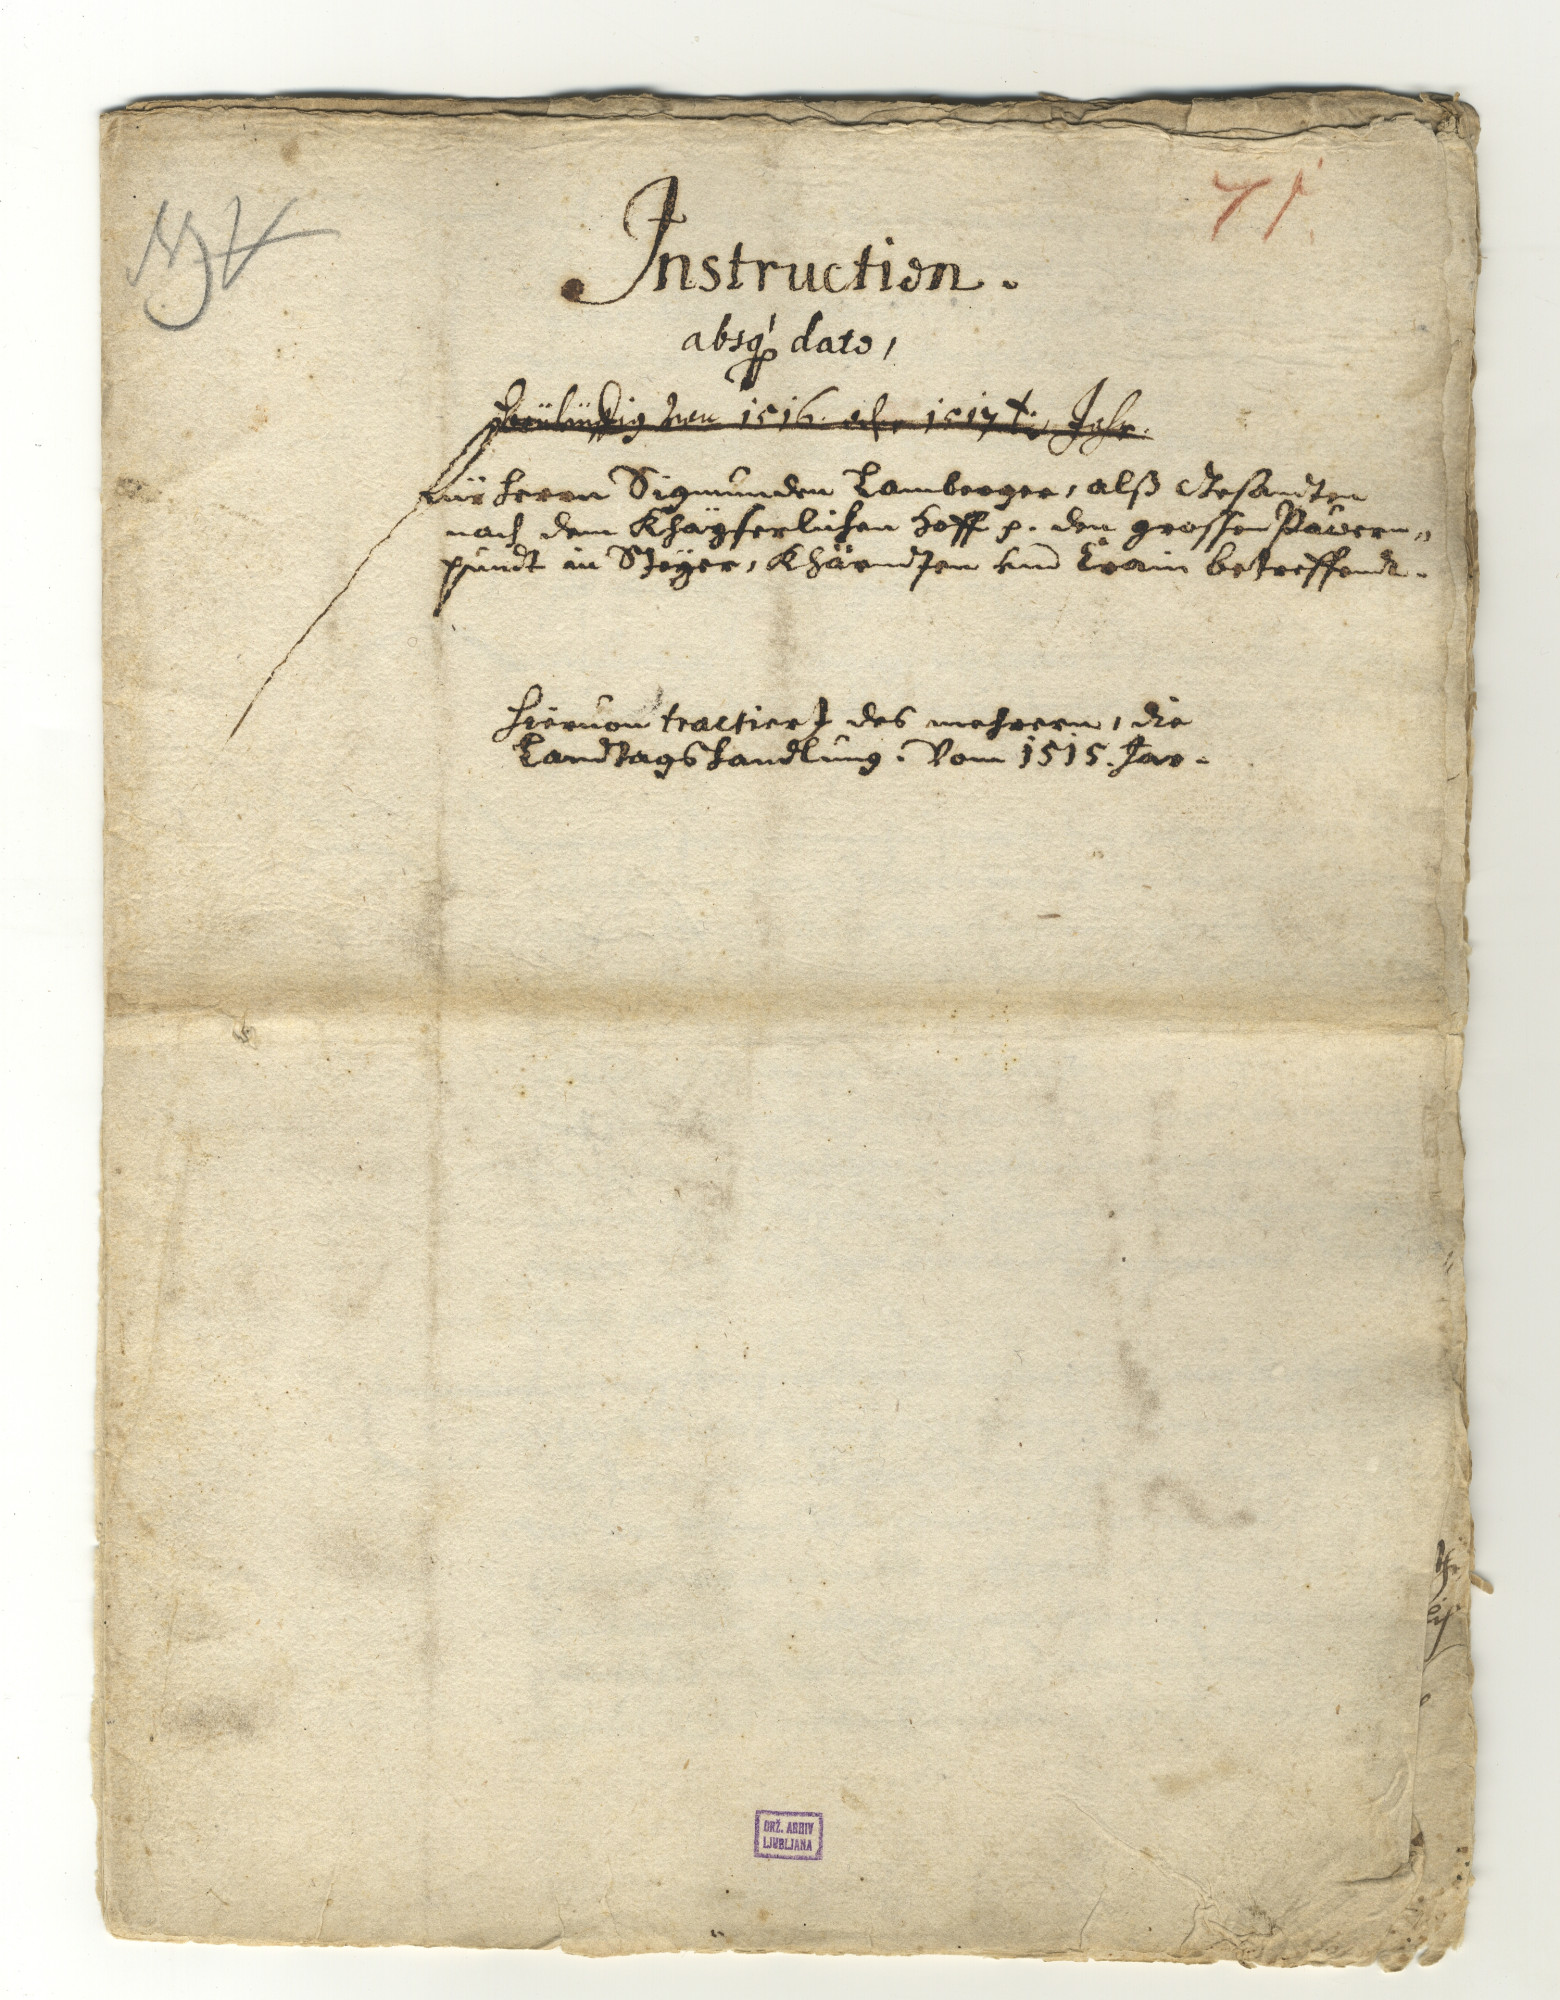 71
Instruction.
absq dato,
1516. oder 1517 Jahr.
für herrn Sigmunden Lamberger, alß Gesandten
nach dem Khayserlichen Hoff p. den grossen Pauern„
pundt in Steyer, Khärndten vnd Crain betreffendt.
Hieruon tractiert des mehrern, die
Landtagshandlung. Vom 1515. Jar.
DRŽ. ARHIV
LJUBLJANA